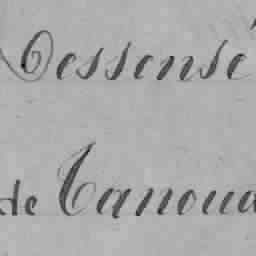 Pessensé
de Tanoua